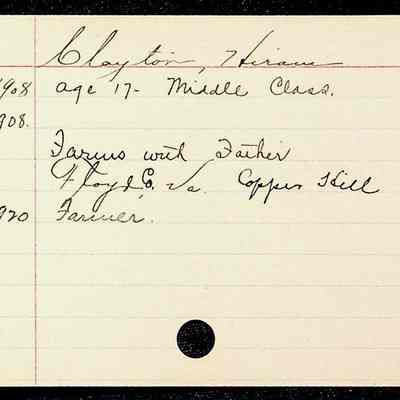 Clayton, Hiram
1908 age 17- Middle Class.
1908.
Farms with Father
Floyd Co. Va. Copper Hill
1920 Farmer.